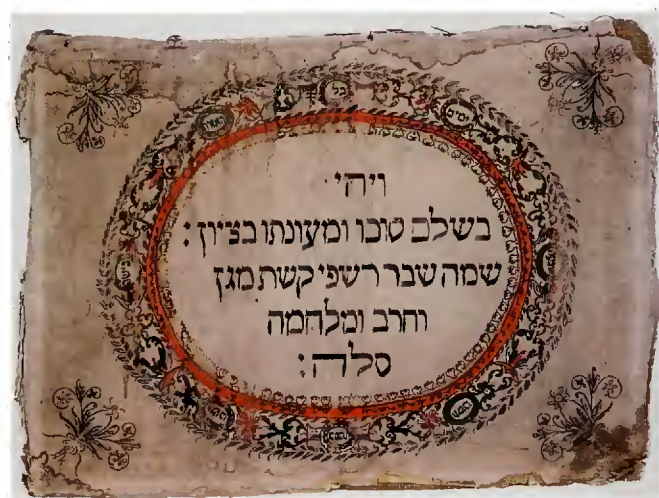 ויהי
בשלם סוכו ומעונתו בציון :
שמה שבר רשפי קשת מגן
וחרב ומלחמה
סלה :